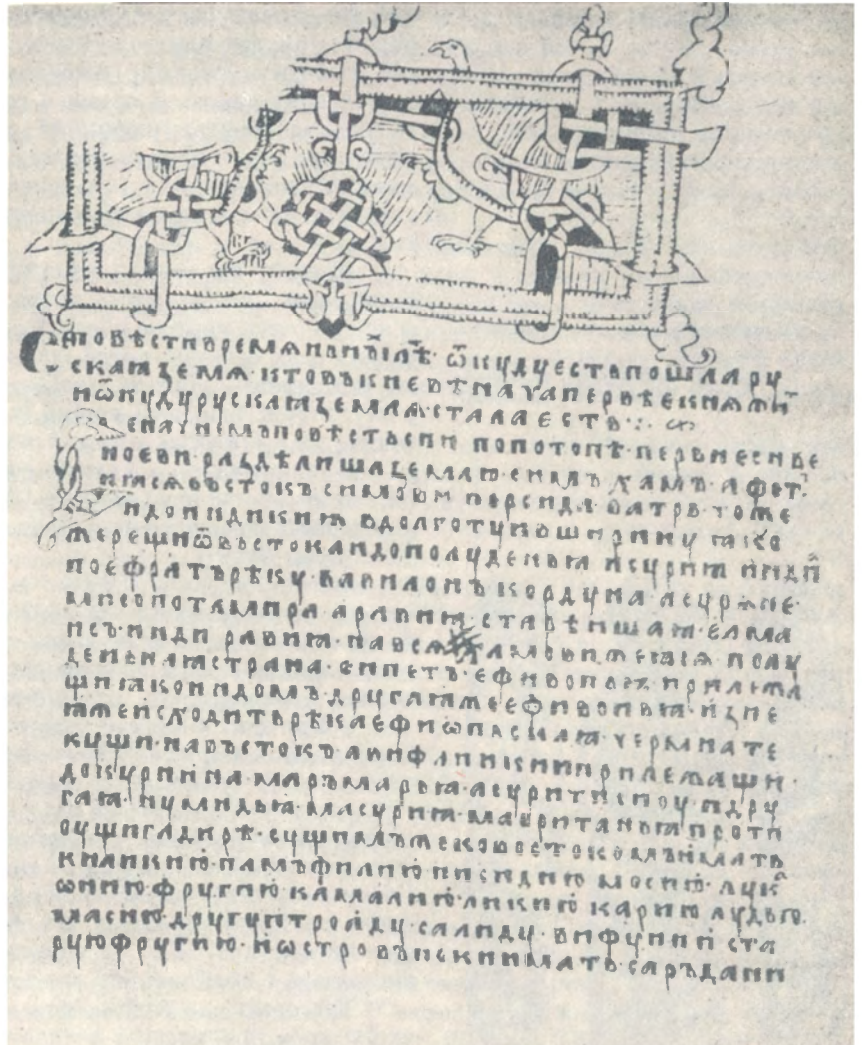 Се повѣсти времѧньныⷯ лѣⷮ. ѿкуду есть пошла ру
скаꙗ земѧ. кто въ киевѣ нача первѣе кнѧжиⷮ
и ѿкуду рускаꙗ землѧ стала есть
Се начнемъ повѣсть сии по потопѣ. первие снве
ноеви. раздѣлиша землю. симъ. хамъ. афетъ.
ꙗсѧ въстокъ симови персида. ватрь. тоже
и до индикиꙗ в долготу и в ширину ꙗко
же рещи ѿ въстока и до полуденьꙗ и суриꙗ. индиꙗ
по ефратъ рѣку. вавилонъ. кордуна. асурѧне.
мисопотамира. аравиꙗ. старѣишаꙗ. елма
исъ. инди. равиꙗ. на всѧ
деньнаꙗ страна. еюпетъ. ефивопьꙗ. прилежа
щиꙗ ко индомъ. другаꙗ же ефивопьꙗ. из неꙗ
ꙗже исходить рѣка ефиѡпьскаꙗ. чермна те
кущи на въстокъ. ливи прилежащи
до куриниꙗ. маръмарьꙗ. асурити. другаꙗ
гаꙗ. нумидьꙗ. масуриꙗ. мавританьꙗ. проти
ву сущи гадирѣ. сущимъ же ко востокомъ имать
киликию. памъфилию. писидию. мосию. лукаⷪ
ѡнию. фругию. камалию. ликию. карию. лудью.
масию. другую троаду. салиду. вифунию. ста
рую фругию. и ѡстровъ неки имать. саръдани